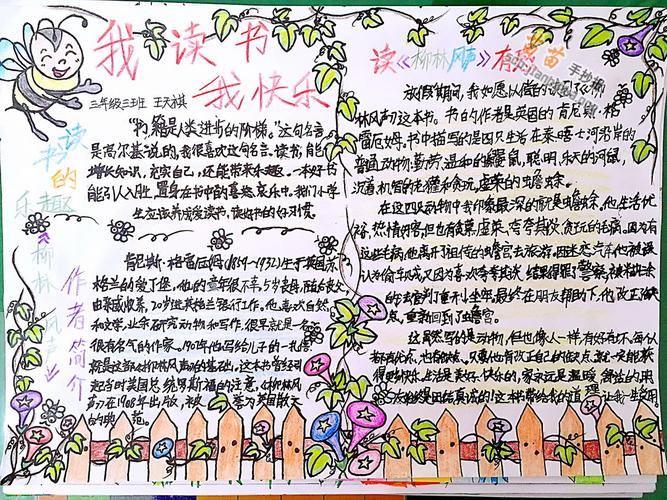 我读书
我快乐
三年级三班 王天祺
读书的
乐趣
"书籍是人类进步的阶梯。"这句名言
是高尔基说的,我很喜欢这句名言。读书,能
增长知识,充实自己,还能带来乐趣。一本好书
能引人入胜,置身在书中的喜怒哀乐中。我们小学
生应该养成爱读书,读好书的好习惯。
《柳林风声》
作者简介
肯尼斯·格雷厄姆(1859~1932)生于英国苏
格兰的爱丁堡,他的童年很不幸,5岁丧母,
由亲戚收养,20岁进英格兰银行工作。他喜欢自然
和文学,业余研究动物和写作,很早就是一名
很有名气的作家。1907年他写给儿子的一札信
就是这部《柳林风声》的基础,这本书曾经引
起当时美国总统罗斯福的注意,《柳林风
声》在1908年出版,被誉为英国散文
的典范。
读《柳林风声》有感
放假期间,我如愿以偿的读了《柳
林风声》这本书。书的作者是英国的肯尼斯·格
雷厄姆。书中描写的是四只生活在泰晤士河岸的
普通动物:勤劳、温和的鼹鼠,聪明、乐天的河鼠,
沉着机智的老獾和贪玩、虚荣的蟾蜍。
在这四只动物中我印象最深的就是蟾蜍,他生活优
裕,热情好客,但也有贪慕、虚荣、夸夸其谈、贪玩的毛病。因为有
这些毛病,他离开了祖传的蟾宫去旅游。因迷恋汽车,他被误
认为偷车贼,又因为喜欢夸夸其谈,结果得罪了警察,被
的法官判重刑坐牢。最终在朋友帮助下,他改正缺
点,重新回到了蟾宫。
这虽然写的是动物,但也像人一样有好有坏,每个
都有优点,也有缺点,只要他有改正自己的缺点,就一定能获
得更多快乐。生活是美好、快乐的,家永远是温暖、舒适的